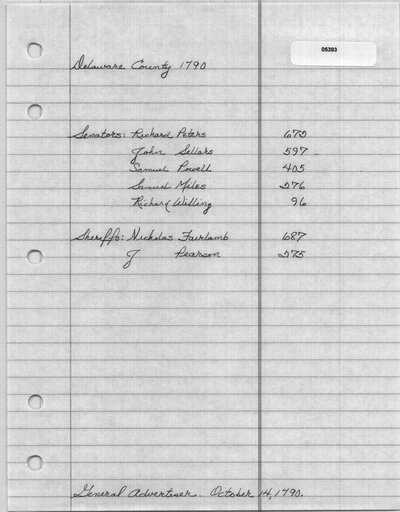 05393
Delaware County 1790
Senators: Richard Peters 670
John Sellars 597
Samuel Powell 405
Samuel Miles 276
Richard Willing 96
Sheriffs: Nickolas Fairlamb 687
J Pearson 275
General Advertiser. October 14, 1790.